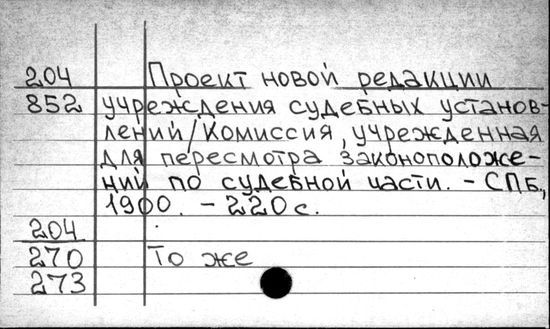 204 Проект новой редакции
852 учреждения судебных установ-
лений/Комиссия, учрежденная
для пересмотра законоположе-
ний по судебной части. - СПБ,
1900. - 220 с.
204
270 То же
273